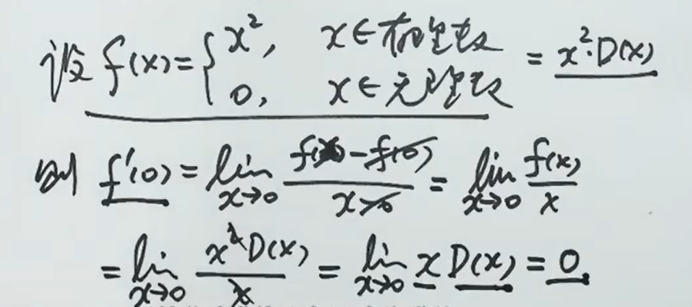 设 f(x)={x², x∈有理数 = x²·D(x)
0, x∈无理数
则 f'(0)=lim x→0 (f(x)-f(0))/(x-0) = lim x→0 f(x)/x
=lim x→0 x²D(x)/x = lim x→0 x D(x) = 0.